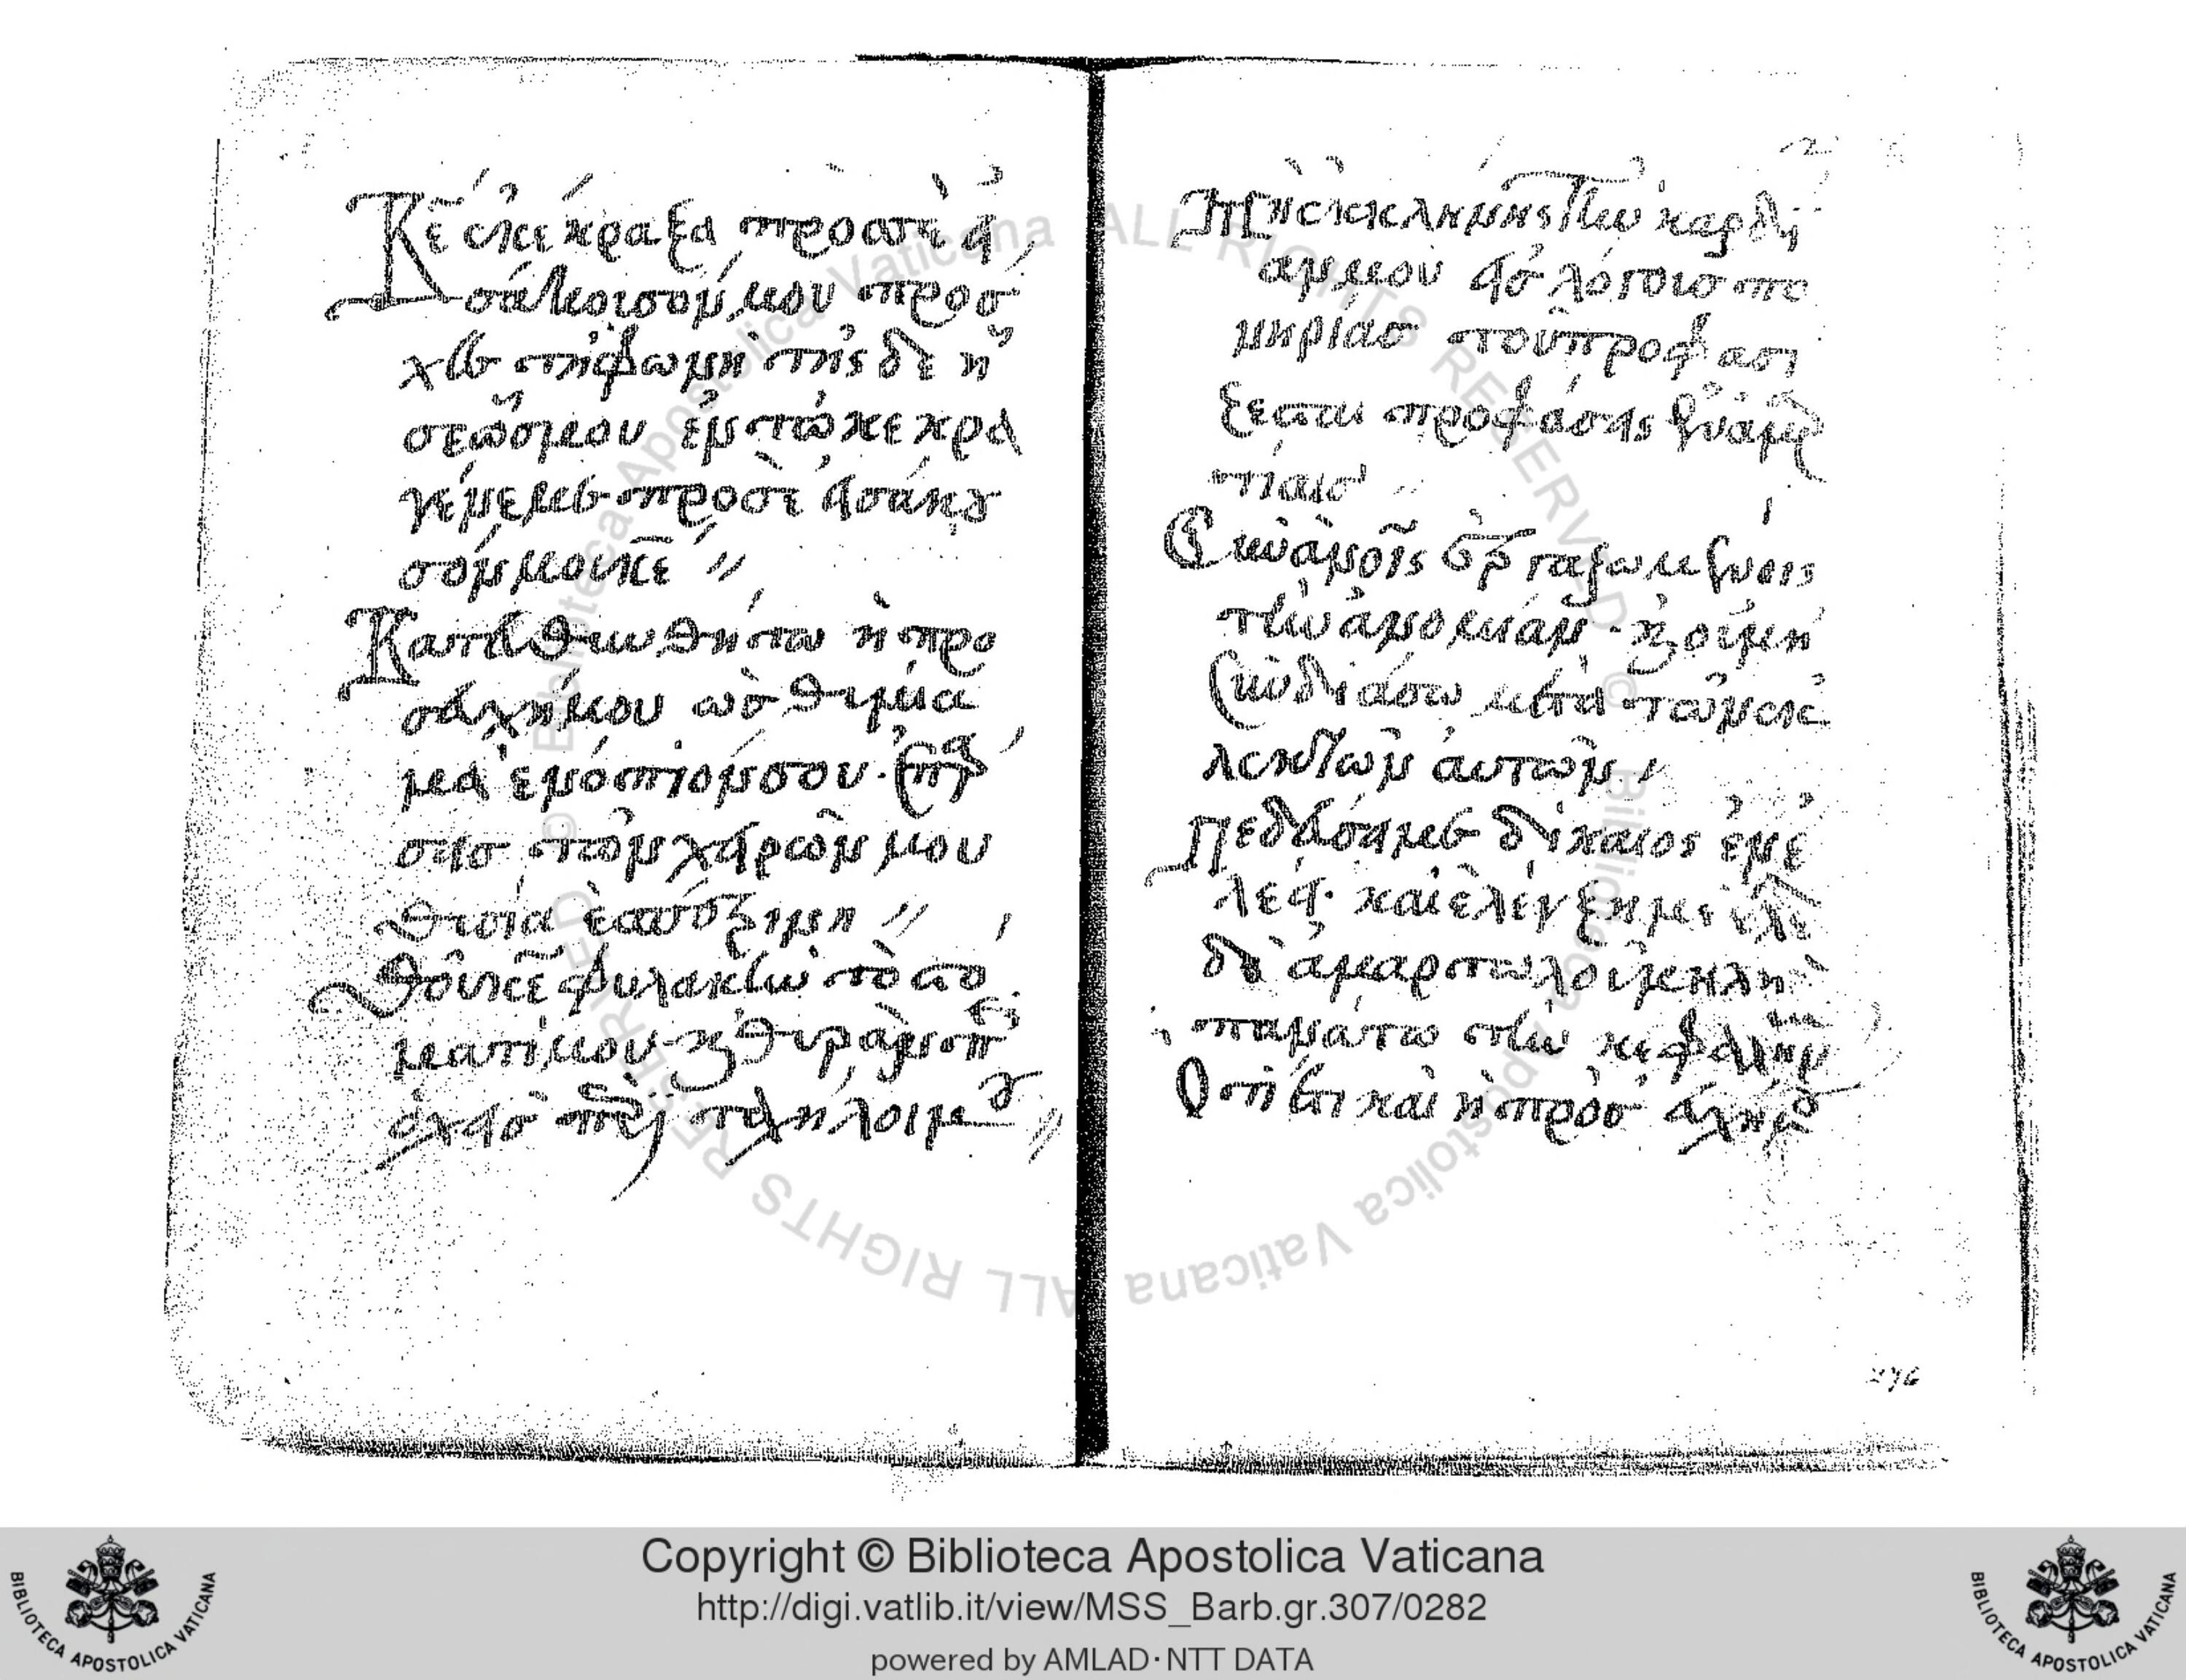 Κε εκέκραξα προσσὲ εἰ
σάκουσόν μου προσ
χες τη φωνη της δε ή
σεώσμου ἐν τῶ κεκρα
γέναι με προσὲ εἰσάκου
σόν μου κε
Κατευθυνθήτω ἡ προ
σευχή μου ὡσ θυμία
μα ενόπιόν σου. ἔπαρ
σεισ τῶν χειρῶν μου
θυσία
Θοῦ κε φυλακὴν τὸ στο
ματί μου καὶ θύραν
μου
Μὴ εκκλίνης τὴν καρδί
αν μου εἰσ λόγουσ πο
νηρίασ τοῦ προφασί
ζεσται προφάσεις ἐν ἁμαρ
τίαισ
Σὺν ἀνοῖς ἐργαζομένοις
τὴν ἀνομίαν. καὶ οὐ μὴ
συνδιάσω μετὰ τῶν ἐκ
λεκτῶν αυτῶν
Πεδεύσει με δίκαιος ἐν ἐ
λέει. και ελέγξη με ελε
δὲ ἁμαρτωλοῦ μὴ λη
πανάτω τὴν κεφαλήν
Οτι ἔτι καὶ ἡ προσ ευχή μου
276
Copyright © Biblioteca Apostolica Vaticana
http://digi.vatlib.it/view/MSS_Barb.gr.307/0282
powered by AMLAD·NTT DATA
BIBLIOTECA APOSTOLICA VATICANA
BIBLIOTECA APOSTOLICA VATICANA